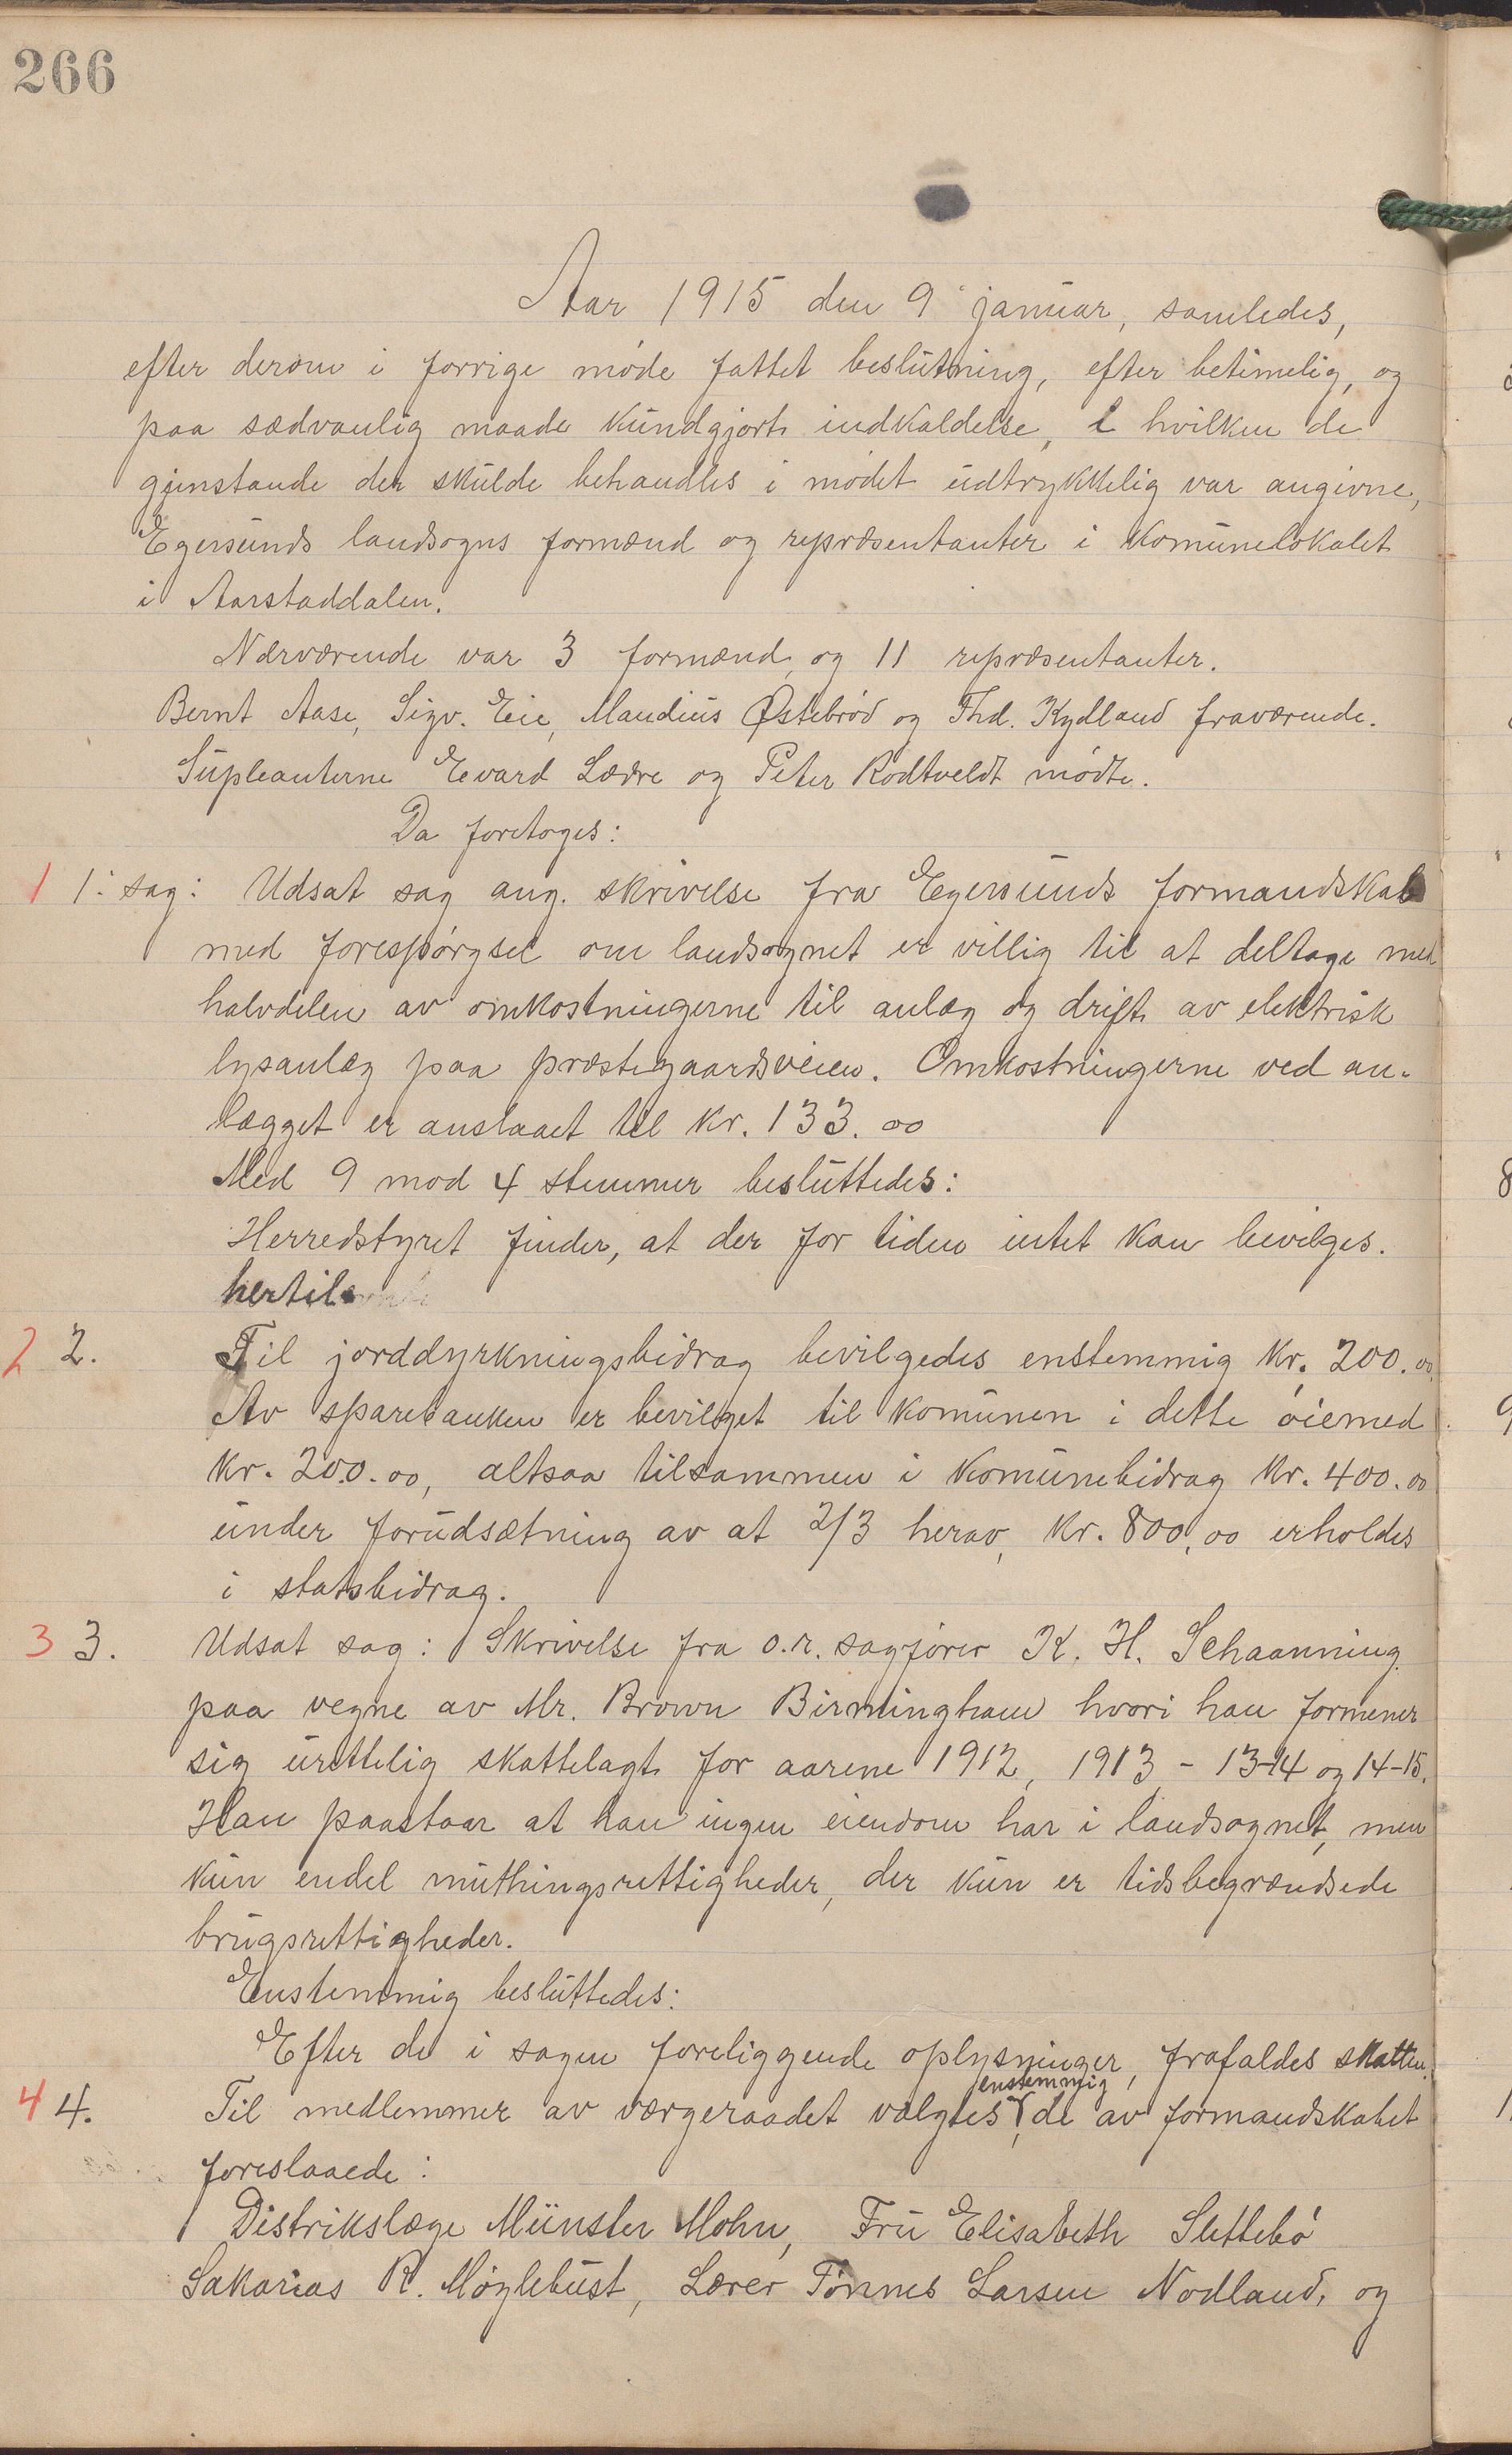 266
Aar 1915 den 9 januar, samledes,
efter derom i forrige møde fattet beslutning, efter betimelig, og
paa sædvanlig maade kundgjort indkaldelse, i hvilken de
gjenstande der skulde behandles i mødet udtrykkelig var angivne,
Egersunds landsogns formænd og repræsentanter i Komunelokalet
i Aarstaddalen.
Nærværende var 3 formænd, og 11 repræsentanter.
Bernt Aase, Sigv. Eie, Maudius Østebrød og Thd. Kydland fraværende.
Supleanterne Edvard Lædre og Peter Rodtveldt mødte.
Da foretoges:
1 1: sag: Udsat sag ang. skrivelse fra Egersunds formandskab
med forespørgsel om landsognet er villig til at deltage med
halvdelen av omkostningerne til anlæg og drift av elektrisk
lysanlæg paa præstegaardsveien. Omkostningerne ved an-
lægget er anslaaet til kr. 133.00
Med 9 mod 4 stemmer besluttedes:
Herredstyret finder, at der for tiden intet kan bevilges.
hertil
2 2. Til jorddyrkningsbidrag bevilgedes enstemmig kr. 200.00.
Av sparebanken er bevilget til komunen i dette øiemed
kr. 200.00, altsaa tilsammen i Komunebidrag kr. 400.00
under forudsætning av at 2/3 herav, kr. 800,00 erholdes
i statsbidrag.
3 3. Udsat sag: Skrivelse fra o.r. sagfører K. H. Schaanning
paa vegne av Mr. Brown Birmingham hvori han formener
sig urettelig skattelagt for aarene 1912, 1913 - 13-14 og 14-15.
Han paastaar at han ingen eiendom har i landsognet, men
kun endel muthingsrettigheder, der kun er tidsbegrændsede
brugsrettigheder.
Enstemmig besluttedes:
Efter de i sagen foreliggende oplysninger, frafaldes skatten.
4 4. Til medlemmer av værgeraadet valgtes enstemmig, de av formandskabet
foreslaaede:
Distrikslæge Münster Mohn, Fru Elisabeth Slettebø
Sakarias R. Møglebust, Lærer Tønnes Larsen Nodland, og